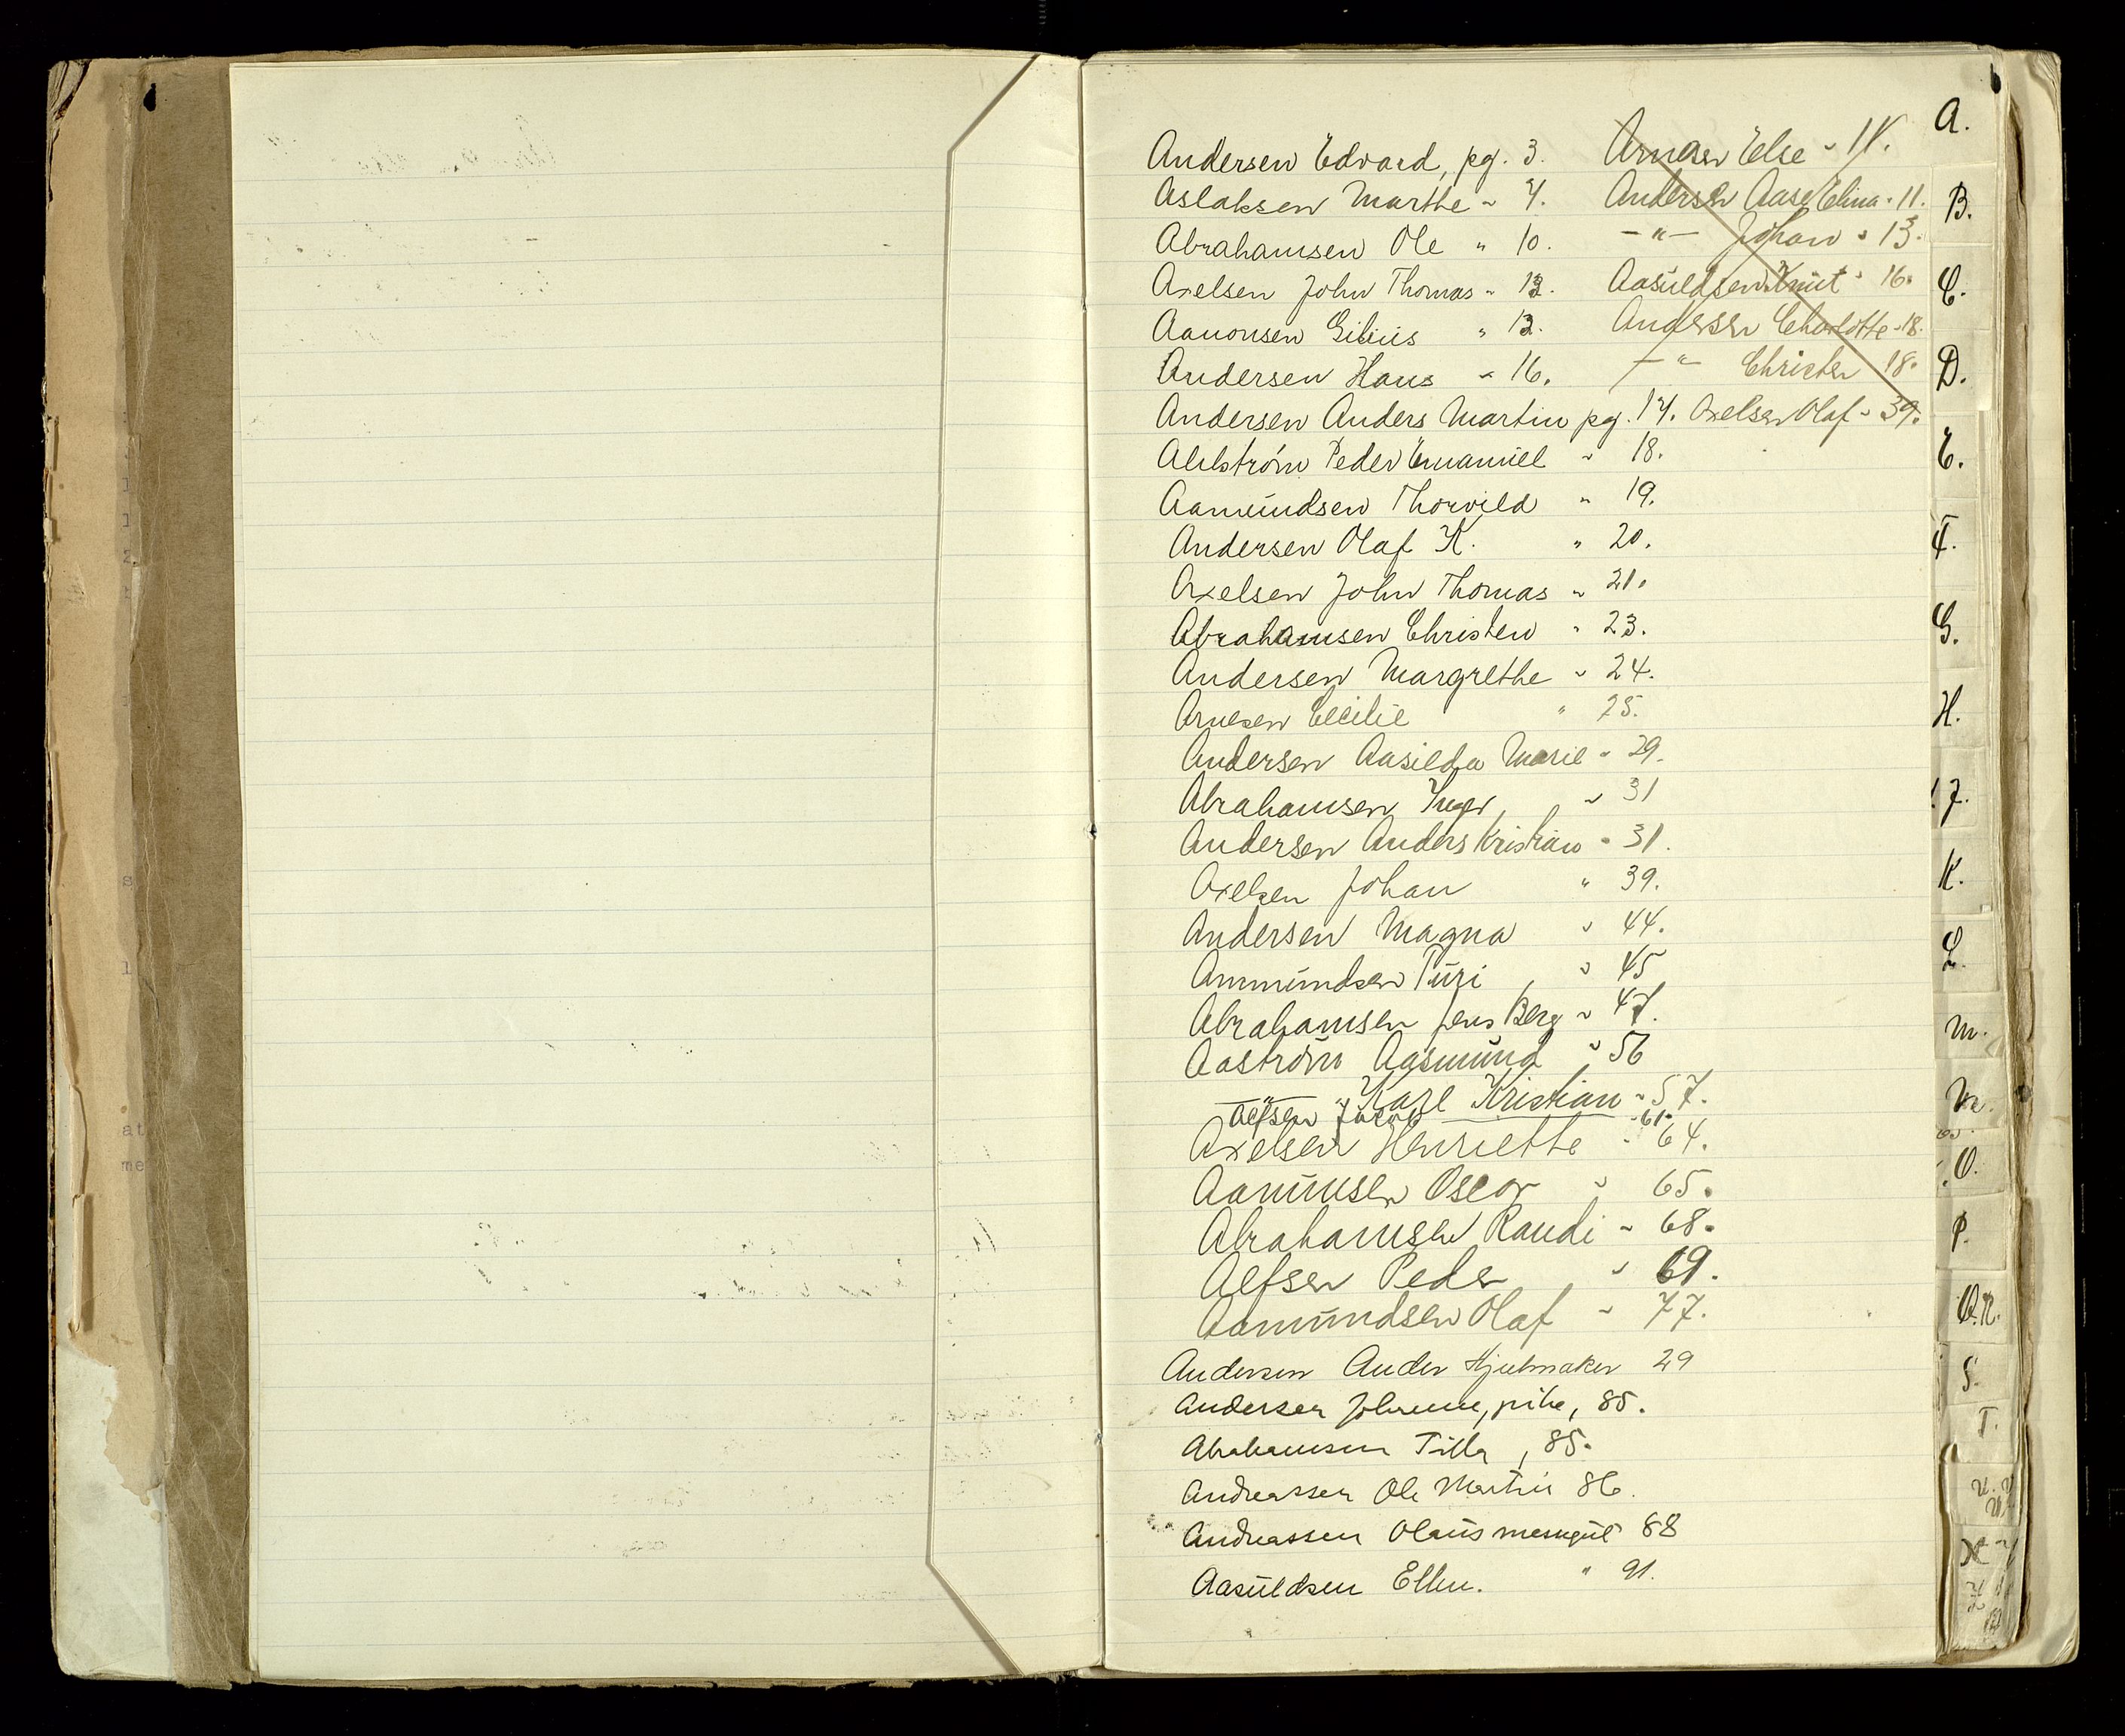 A.
Andersen Edvard, pg. 3.
Aslaksen Marthe " 4.
Abrahamsen Ole " 10.
Axelsen John Thomas " 13.
Aanonsen Gilius " 13.
Andersen Hans " 16.
Andersen Anders Martin pg. 17.
Ahlström Peder Emanuel " 18.
Aamundsen Thorvild " 19.
Andersen Olaf K. " 20.
Axelsen John Thomas " 21.
Abrahamsen Christen " 23.
Andersen Margrethe " 24.
Arnesen Cecilie " 25.
Andersen Aasilda Marie " 29.
Abrahamsen Inger " 31
Andersen Anders Kristian " 31.
Axelsen Johan " 39.
Andersen Magna " 44.
Ammundsen Turi " 45
Abrahamsen Jens Berg " 47.
Aaström Aasmund " 56
—"— Karl Kristian " 57.
Alfsen Jacob " 61.
Axelsen Henriette " 64.
Aanunsen Oscar " 65.
Abrahamsen Randi " 68.
Alfsen Peder " 69.
Aamundsen Olaf " 77.
Andersen Ander Hjulmaker 29
Andersen Johanne, pike, 85.
Abrahamsen Tilla, 85.
Andreassen Ole Martin 86.
Andreassen Olaus 88
Aasuldsen Ellen. " 91.
Else "
Andersen Aase Elina " 11.
—"— Johan " 13.
Aasuldsen Knut " 16.
Andersen Charlotte " 18.
—"— Christen 18.
Axelsen Olaf " 39.
B.
C.
D.
E.
F.
G.
H.
I. J.
K.
L.
M.
N.
O.
P.
Q.R.
S.
T.